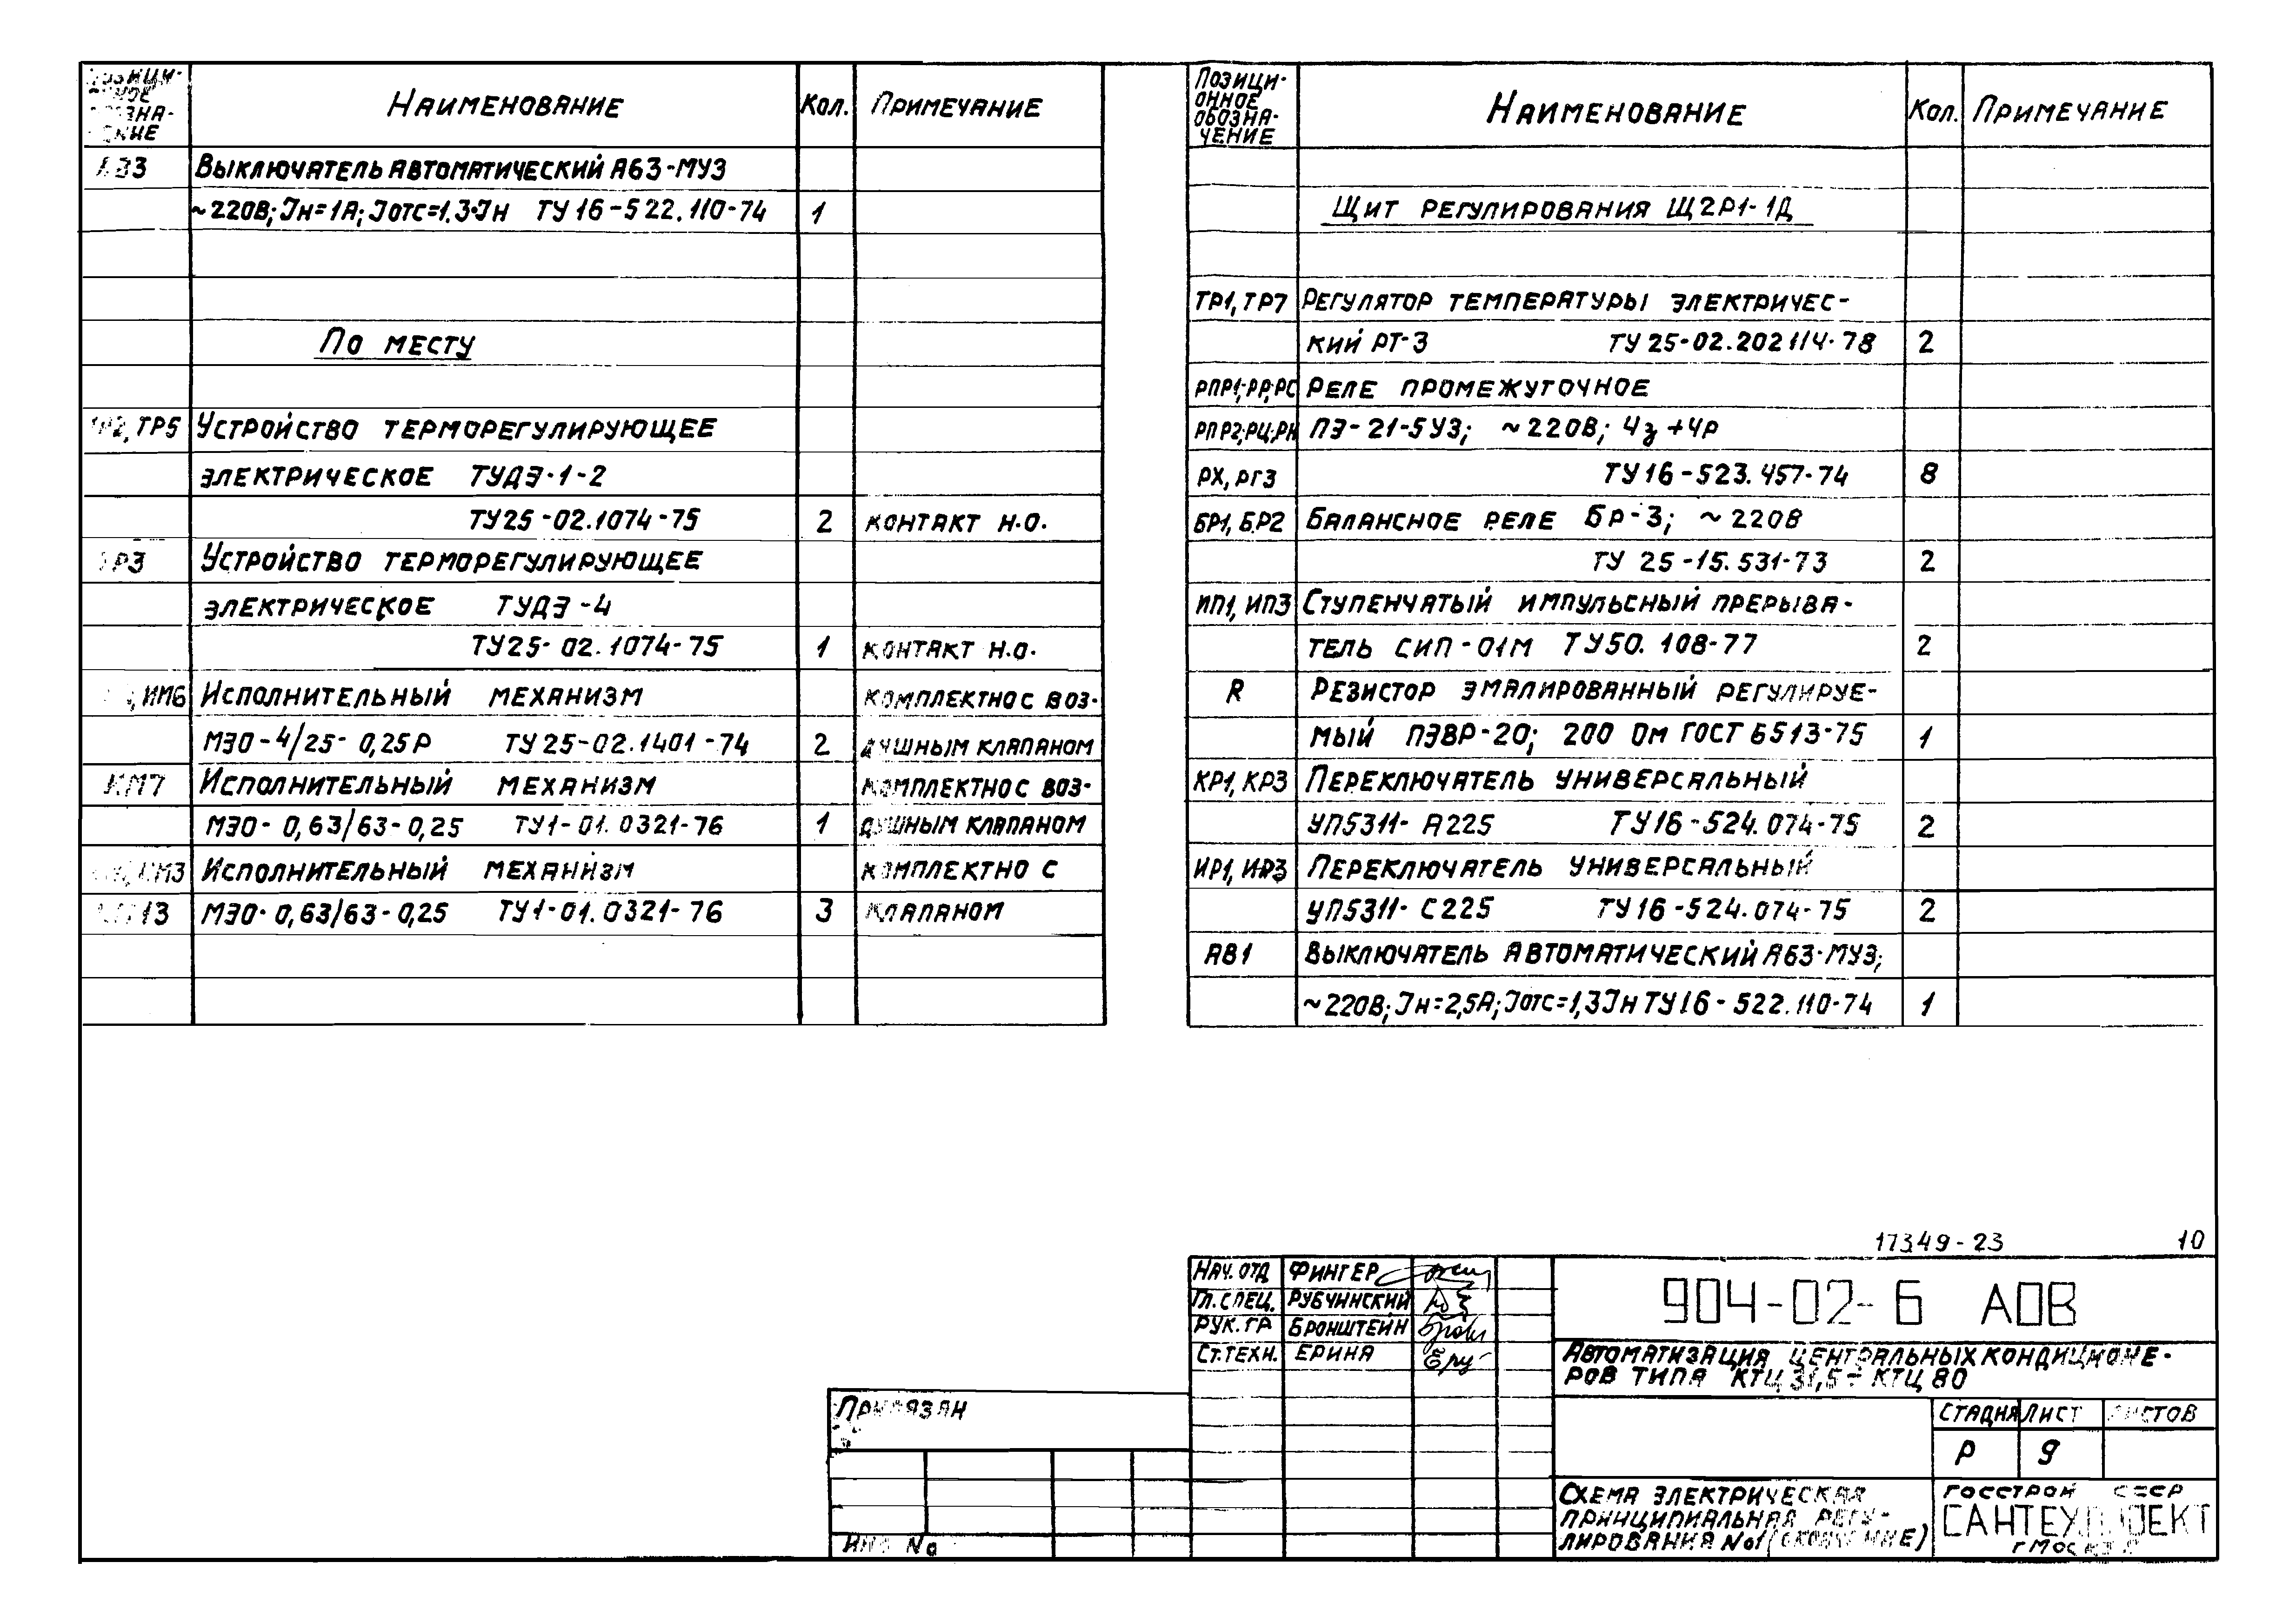 НАИМЕНОВАНИЕ КОЛ. ПРИМЕЧАНИЕ
АВ3 ВЫКЛЮЧАТЕЛЬ АВТОМАТИЧЕСКИЙ А63-МУЗ
~220В; Iн=1А; Iотс=1.3·Iн ТУ 16-522.110-74 1
ПО МЕСТУ
ТР2, ТР5 УСТРОЙСТВО ТЕРМОРЕГУЛИРУЮЩЕЕ
ЭЛЕКТРИЧЕСКОЕ ТУДЭ-1-2
ТУ25-02.1074-75 2 КОНТАКТ Н.О.
ТР3 УСТРОЙСТВО ТЕРМОРЕГУЛИРУЮЩЕЕ
ЭЛЕКТРИЧЕСКОЕ ТУДЭ-4
ТУ25-02.1074-75 1 КОНТАКТ Н.О.
ИМ6 ИСПОЛНИТЕЛЬНЫЙ МЕХАНИЗМ КОМПЛЕКТНО С ВОЗ-
МЭО-4/25-0,25Р ТУ 25-02.1401-74 2 ДУШНЫМ КЛАПАНОМ
ИМ7 ИСПОЛНИТЕЛЬНЫЙ МЕХАНИЗМ КОМПЛЕКТНО С ВОЗ-
МЭО-0,63/63-0,25 ТУ1-01.0321-76 1 ДУШНЫМ КЛАПАНОМ
ИМ3 ИСПОЛНИТЕЛЬНЫЙ МЕХАНИЗМ КОМПЛЕКТНО С
ИМ13 МЭО-0,63/63-0,25 ТУ1-01.0321-76 3 КЛАПАНОМ
ПОЗИЦИ-
ОННОЕ
ОБОЗНА-
ЧЕНИЕ
НАИМЕНОВАНИЕ КОЛ. ПРИМЕЧАНИЕ
ЩИТ РЕГУЛИРОВАНИЯ Щ2Р1-1Д
ТР1, ТР7 РЕГУЛЯТОР ТЕМПЕРАТУРЫ ЭЛЕКТРИЧЕС-
КИЙ РТ-3 ТУ 25-02.202114-78 2
РПР1; РР; РС РЕЛЕ ПРОМЕЖУТОЧНОЕ
РПР2; РЦ; РН ПЭ-21-5У3; ~220В; 4з+4р
РХ, РГ3 ТУ16-523.457-74 8
БР1, БР2 БАЛАНСНОЕ РЕЛЕ БР-3; ~220В
ТУ 25-15.531-73 2
ИП1, ИП3 СТУПЕНЧАТЫЙ ИМПУЛЬСНЫЙ ПРЕРЫВА-
ТЕЛЬ СИП-01М ТУ50.108-77 2
R РЕЗИСТОР ЭМАЛИРОВАННЫЙ РЕГУЛИРУЕ-
МЫЙ ПЭВР-20; 200 ОМ ГОСТ 6513-75 1
КР1, КР3 ПЕРЕКЛЮЧАТЕЛЬ УНИВЕРСАЛЬНЫЙ
УП5311-А225 ТУ16-524.074-75 2
ИР1, ИР3 ПЕРЕКЛЮЧАТЕЛЬ УНИВЕРСАЛЬНЫЙ
УП5311-С225 ТУ16-524.074-75 2
АВ1 ВЫКЛЮЧАТЕЛЬ АВТОМАТИЧЕСКИЙ А63-МУЗ;
~220В; Iн=2,5А; Iотс=1,3Iн ТУ16-522.110-74 1
17349-23 10
НАЧ. ОТД ФИНГЕР
ГЛ. СПЕЦ. РУБЧИНСКИЙ
РУК. ГР БРОНШТЕЙН
СТ. ТЕХН. ЕРИНА
904-02-6 АОВ
АВТОМАТИЗАЦИЯ ЦЕНТРАЛЬНЫХ КОНДИЦИОНЕ-
РОВ ТИПА КТЦ 31,5÷КТЦ 80
ПРИВЯЗАН
СТАДИЯ ЛИСТ ЛИСТОВ
Р 9
СХЕМА ЭЛЕКТРИЧЕСКАЯ
ПРИНЦИПИАЛЬНАЯ РЕГУ-
ЛИРОВАНИЯ №1 (ОКОНЧАНИЕ)
ГОССТРОЙ СССР
САНТЕХПРОЕКТ
г МОСКВА
ИНВ №